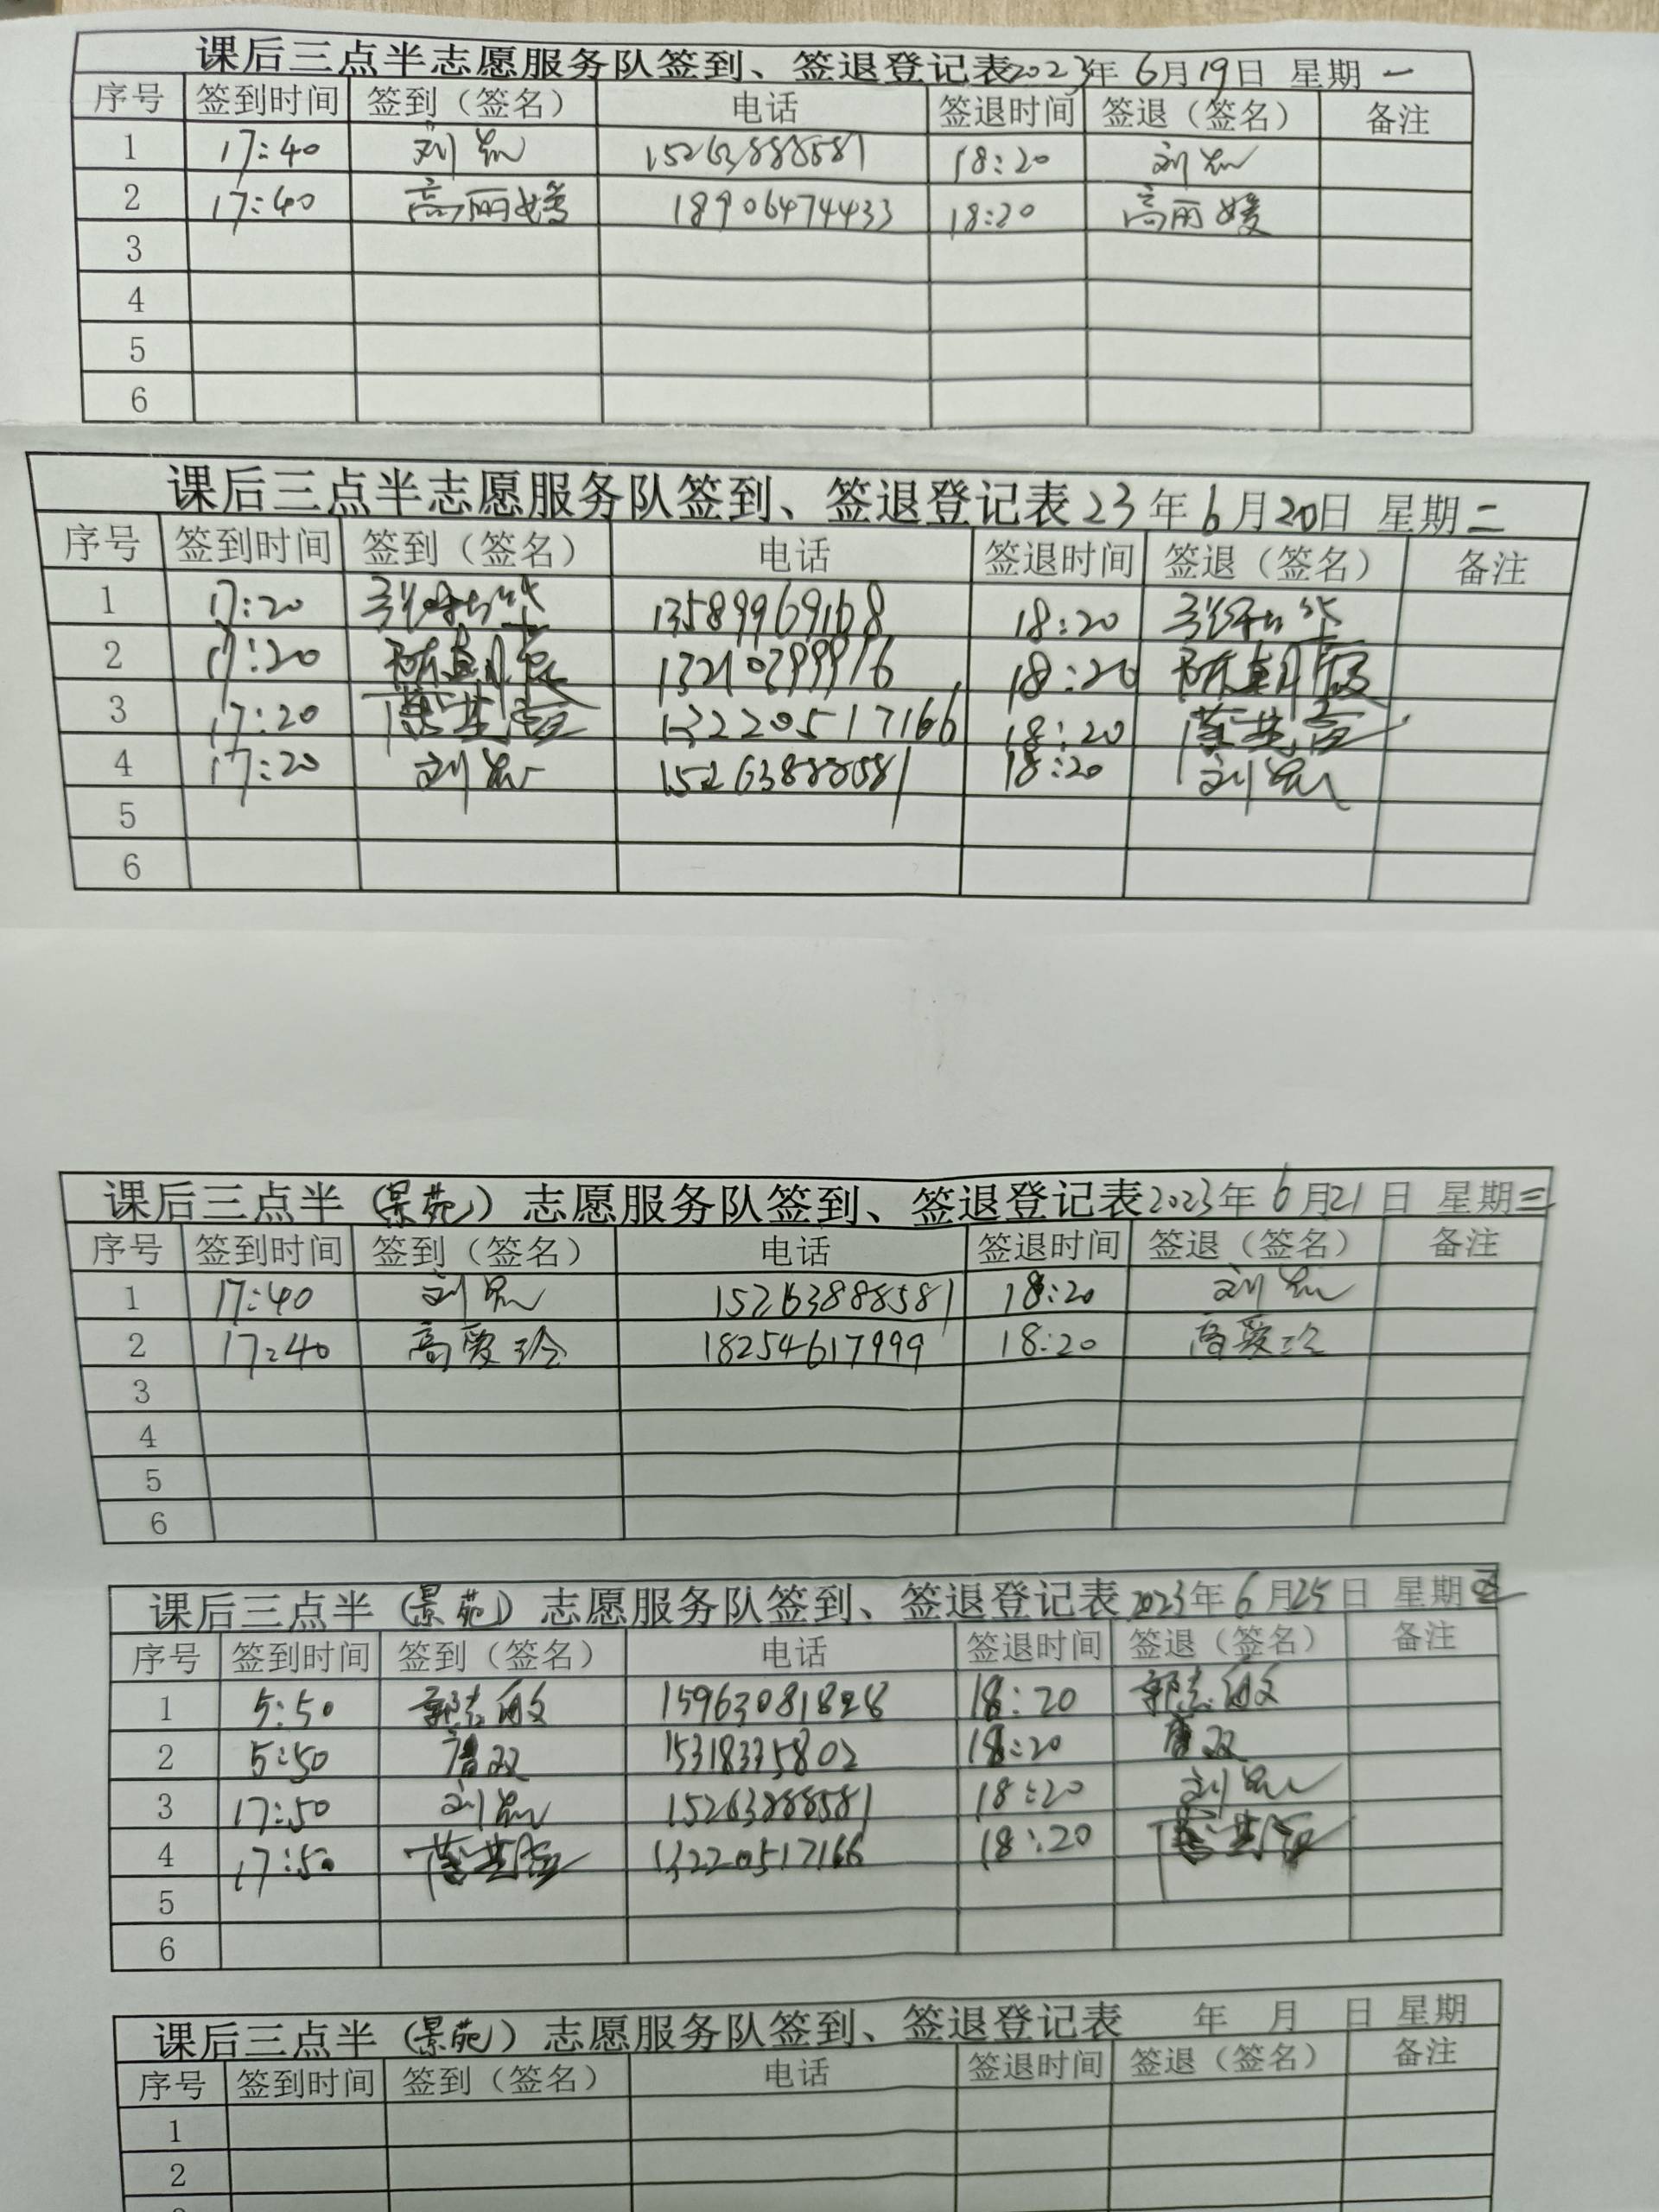 课后三点半志愿服务队签到、签退登记表2023年 6月19日 星期一
序号 签到时间 签到（签名） 电话 签退时间 签退（签名） 备注
1 17:40 刘 15263888581 18:20 刘
2 17:40 高丽媛 18906474433 18:20 高丽媛
3
4
5
6
课后三点半志愿服务队签到、签退登记表 23 年 6月20日 星期二
序号 签到时间 签到（签名） 电话 签退时间 签退（签名） 备注
1 17:20 13589969168 18:20
2 17:20 18:20
3 17:20 13220517166 18:20
4 17:20 刘 15263888581 18:20 刘
5
6
课后三点半（景苑）志愿服务队签到、签退登记表2023年 6月21日 星期三
序号 签到时间 签到（签名） 电话 签退时间 签退（签名） 备注
1 17:40 刘 15263888581 18:20 刘
2 17:40 高爱玲 18254617999 18:20 高爱玲
3
4
5
6
课后三点半（景苑）志愿服务队签到、签退登记表 2023年 6月25日 星期
序号 签到时间 签到（签名） 电话 签退时间 签退（签名） 备注
1 5:50 郭志敏 15963081828 18:20 郭志敏
2 5:50 唐双 15318335802 18:20 唐双
3 17:50 刘 15263888581 18:20 刘
4 17:50 13220517166 18:20
5
6
课后三点半（景苑）志愿服务队签到、签退登记表 年 月 日 星期
序号 签到时间 签到（签名） 电话 签退时间 签退（签名） 备注
1
2